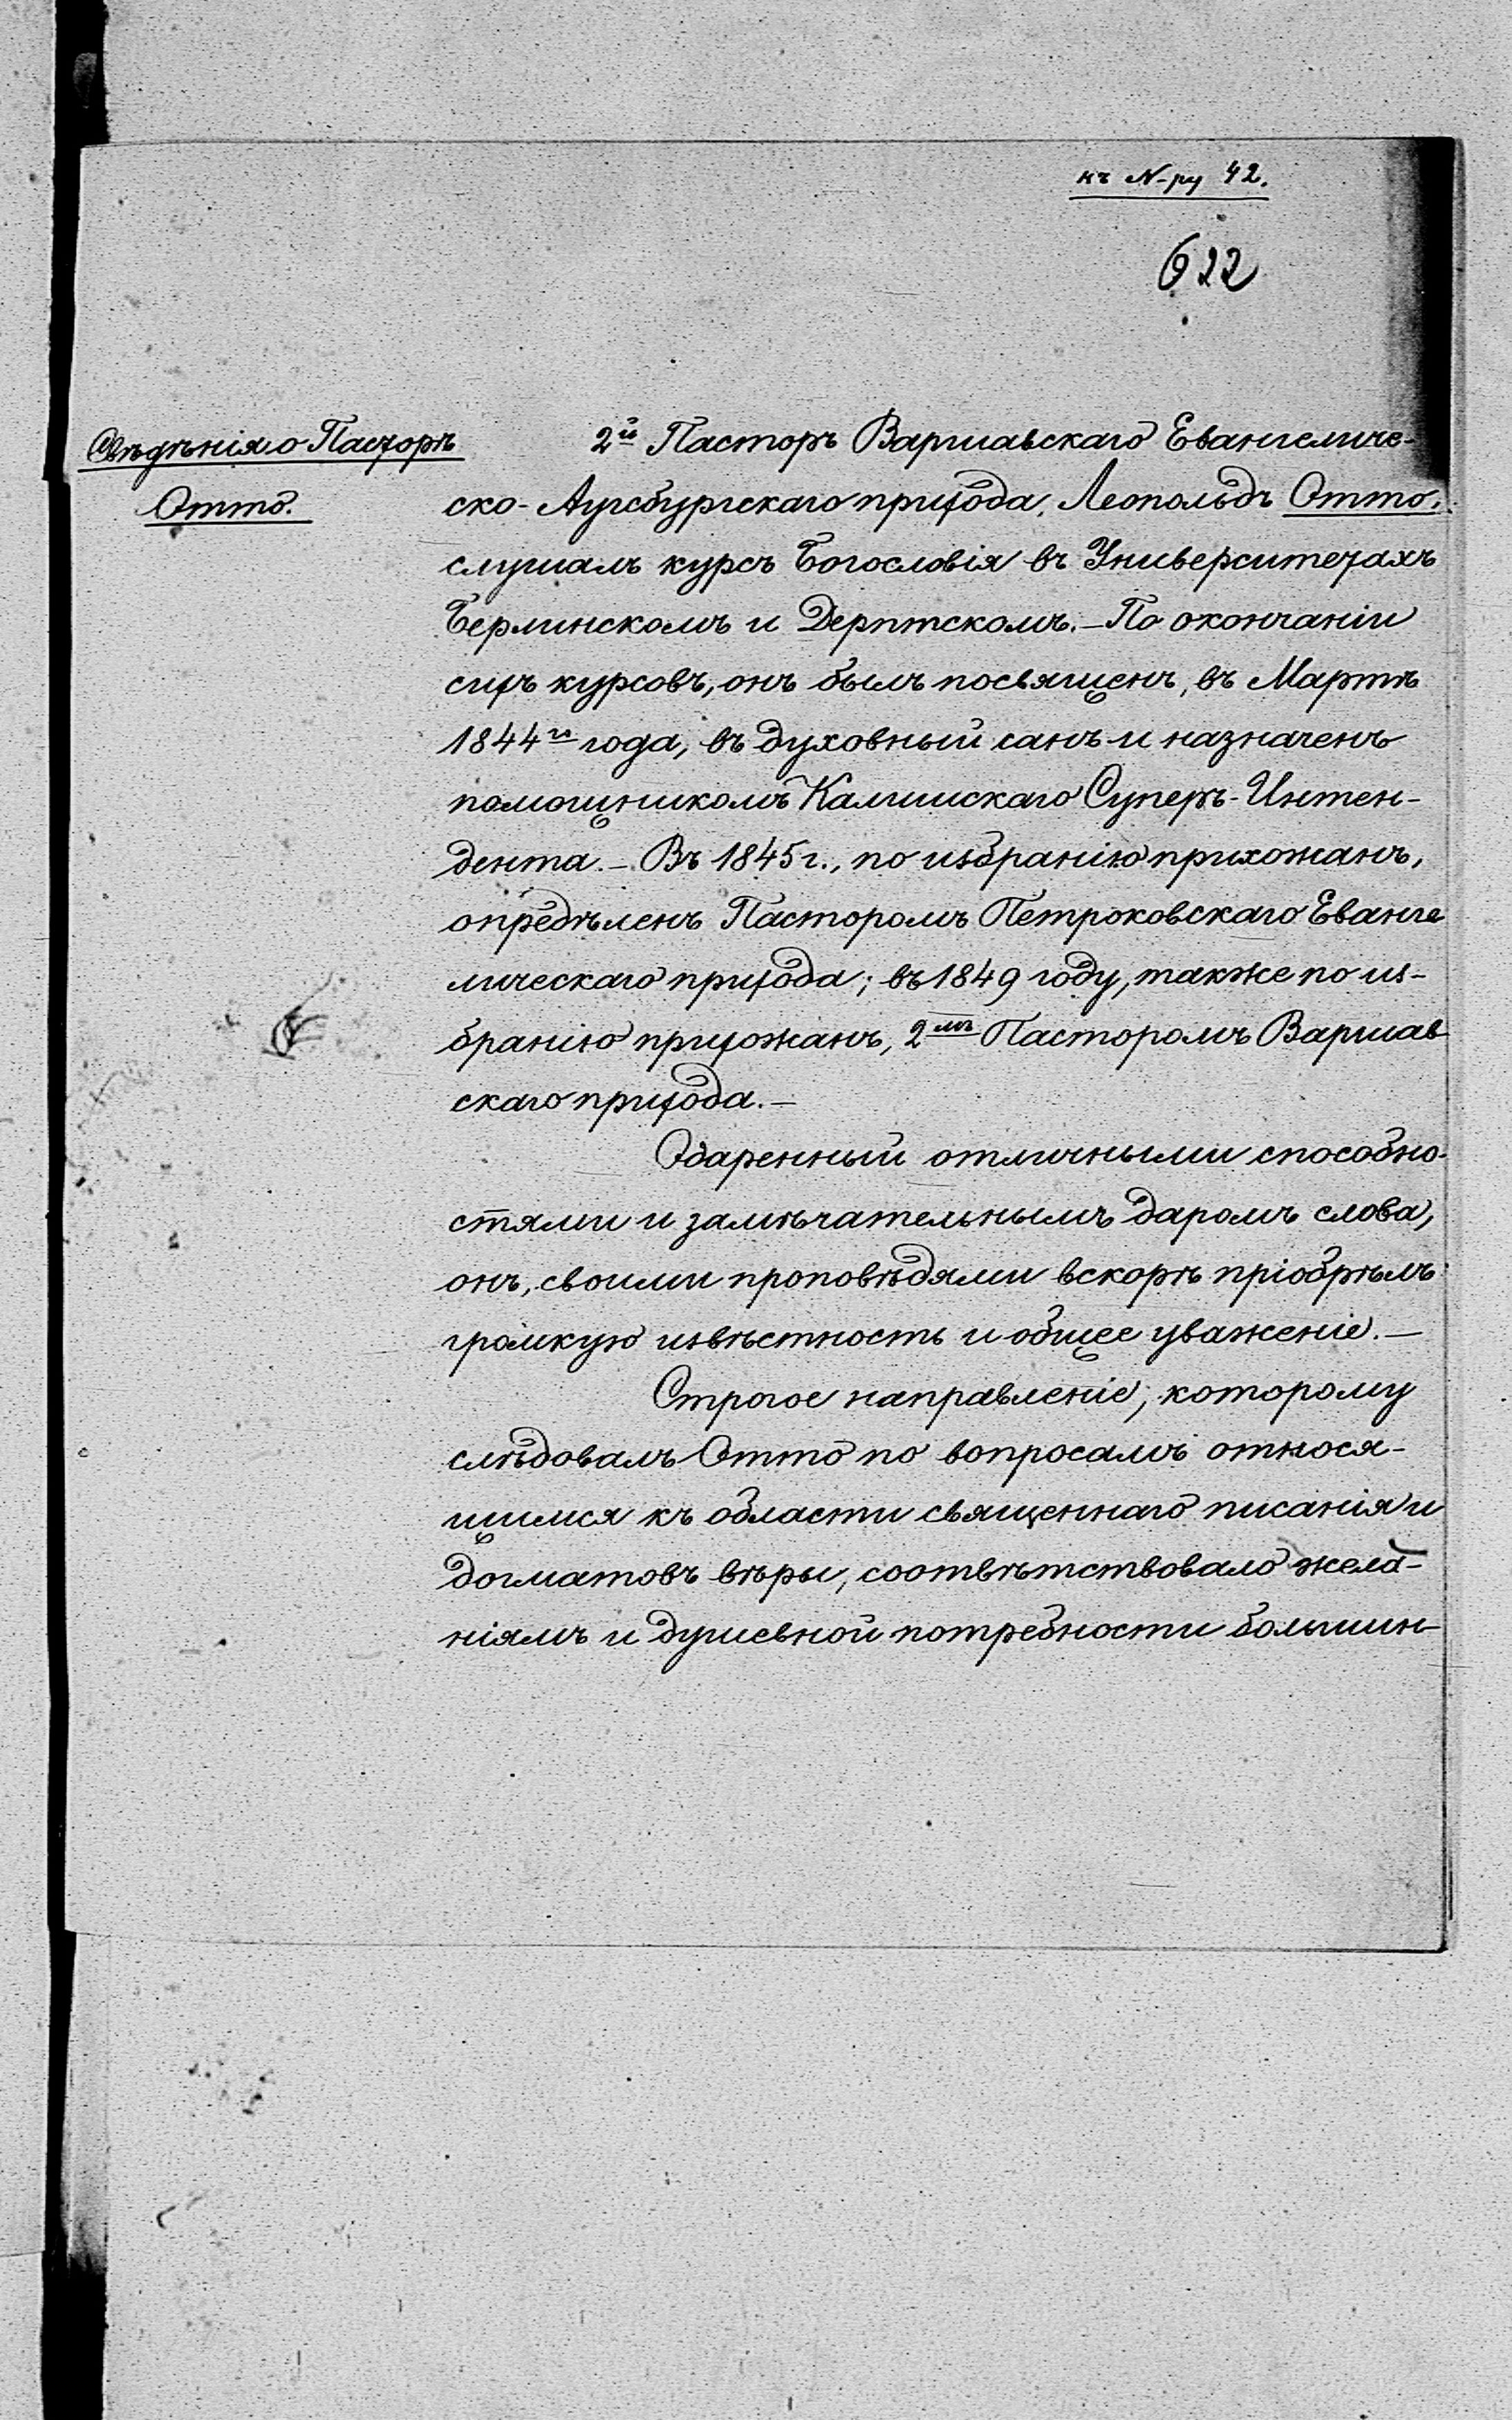 къ N-ру 42.
622
Свѣдѣнія о Пасторѣ
Отто.
2й Пасторъ Варшавскаго Евангеличе-
ско-Аугсбургскаго прихода, Леопольдъ Отто,
слушалъ курсъ Богословія въ Университетахъ
Берлинскомъ и Дерптскомъ.—По окончаніи
сихъ курсовъ, онъ былъ посвященъ, въ Мартѣ
1844го года, въ духовный санъ и назначенъ
помощникомъ Калишскаго Суперъ-Интен-
дента.—Въ 1845 г., по избранію прихожанъ,
опредѣленъ Пасторомъ Петроковскаго Еванге
лическаго прихода; въ 1849 году, также по из-
бранію прихожанъ, 2мъ Пасторомъ Варшав
скаго прихода.—
Одаренный отличными способно-
стями и замѣчательнымъ даромъ слова,
онъ, своими проповѣдями вскорѣ пріобрѣлъ
громкую извѣстность и общее уваженіе.—
Строгое направленіе, которому
слѣдовалъ Отто по вопросамъ относя-
щимся къ области священнаго писанія и
догматовъ вѣры, соотвѣтствовало жела-
ніямъ и душевной потребности большин-